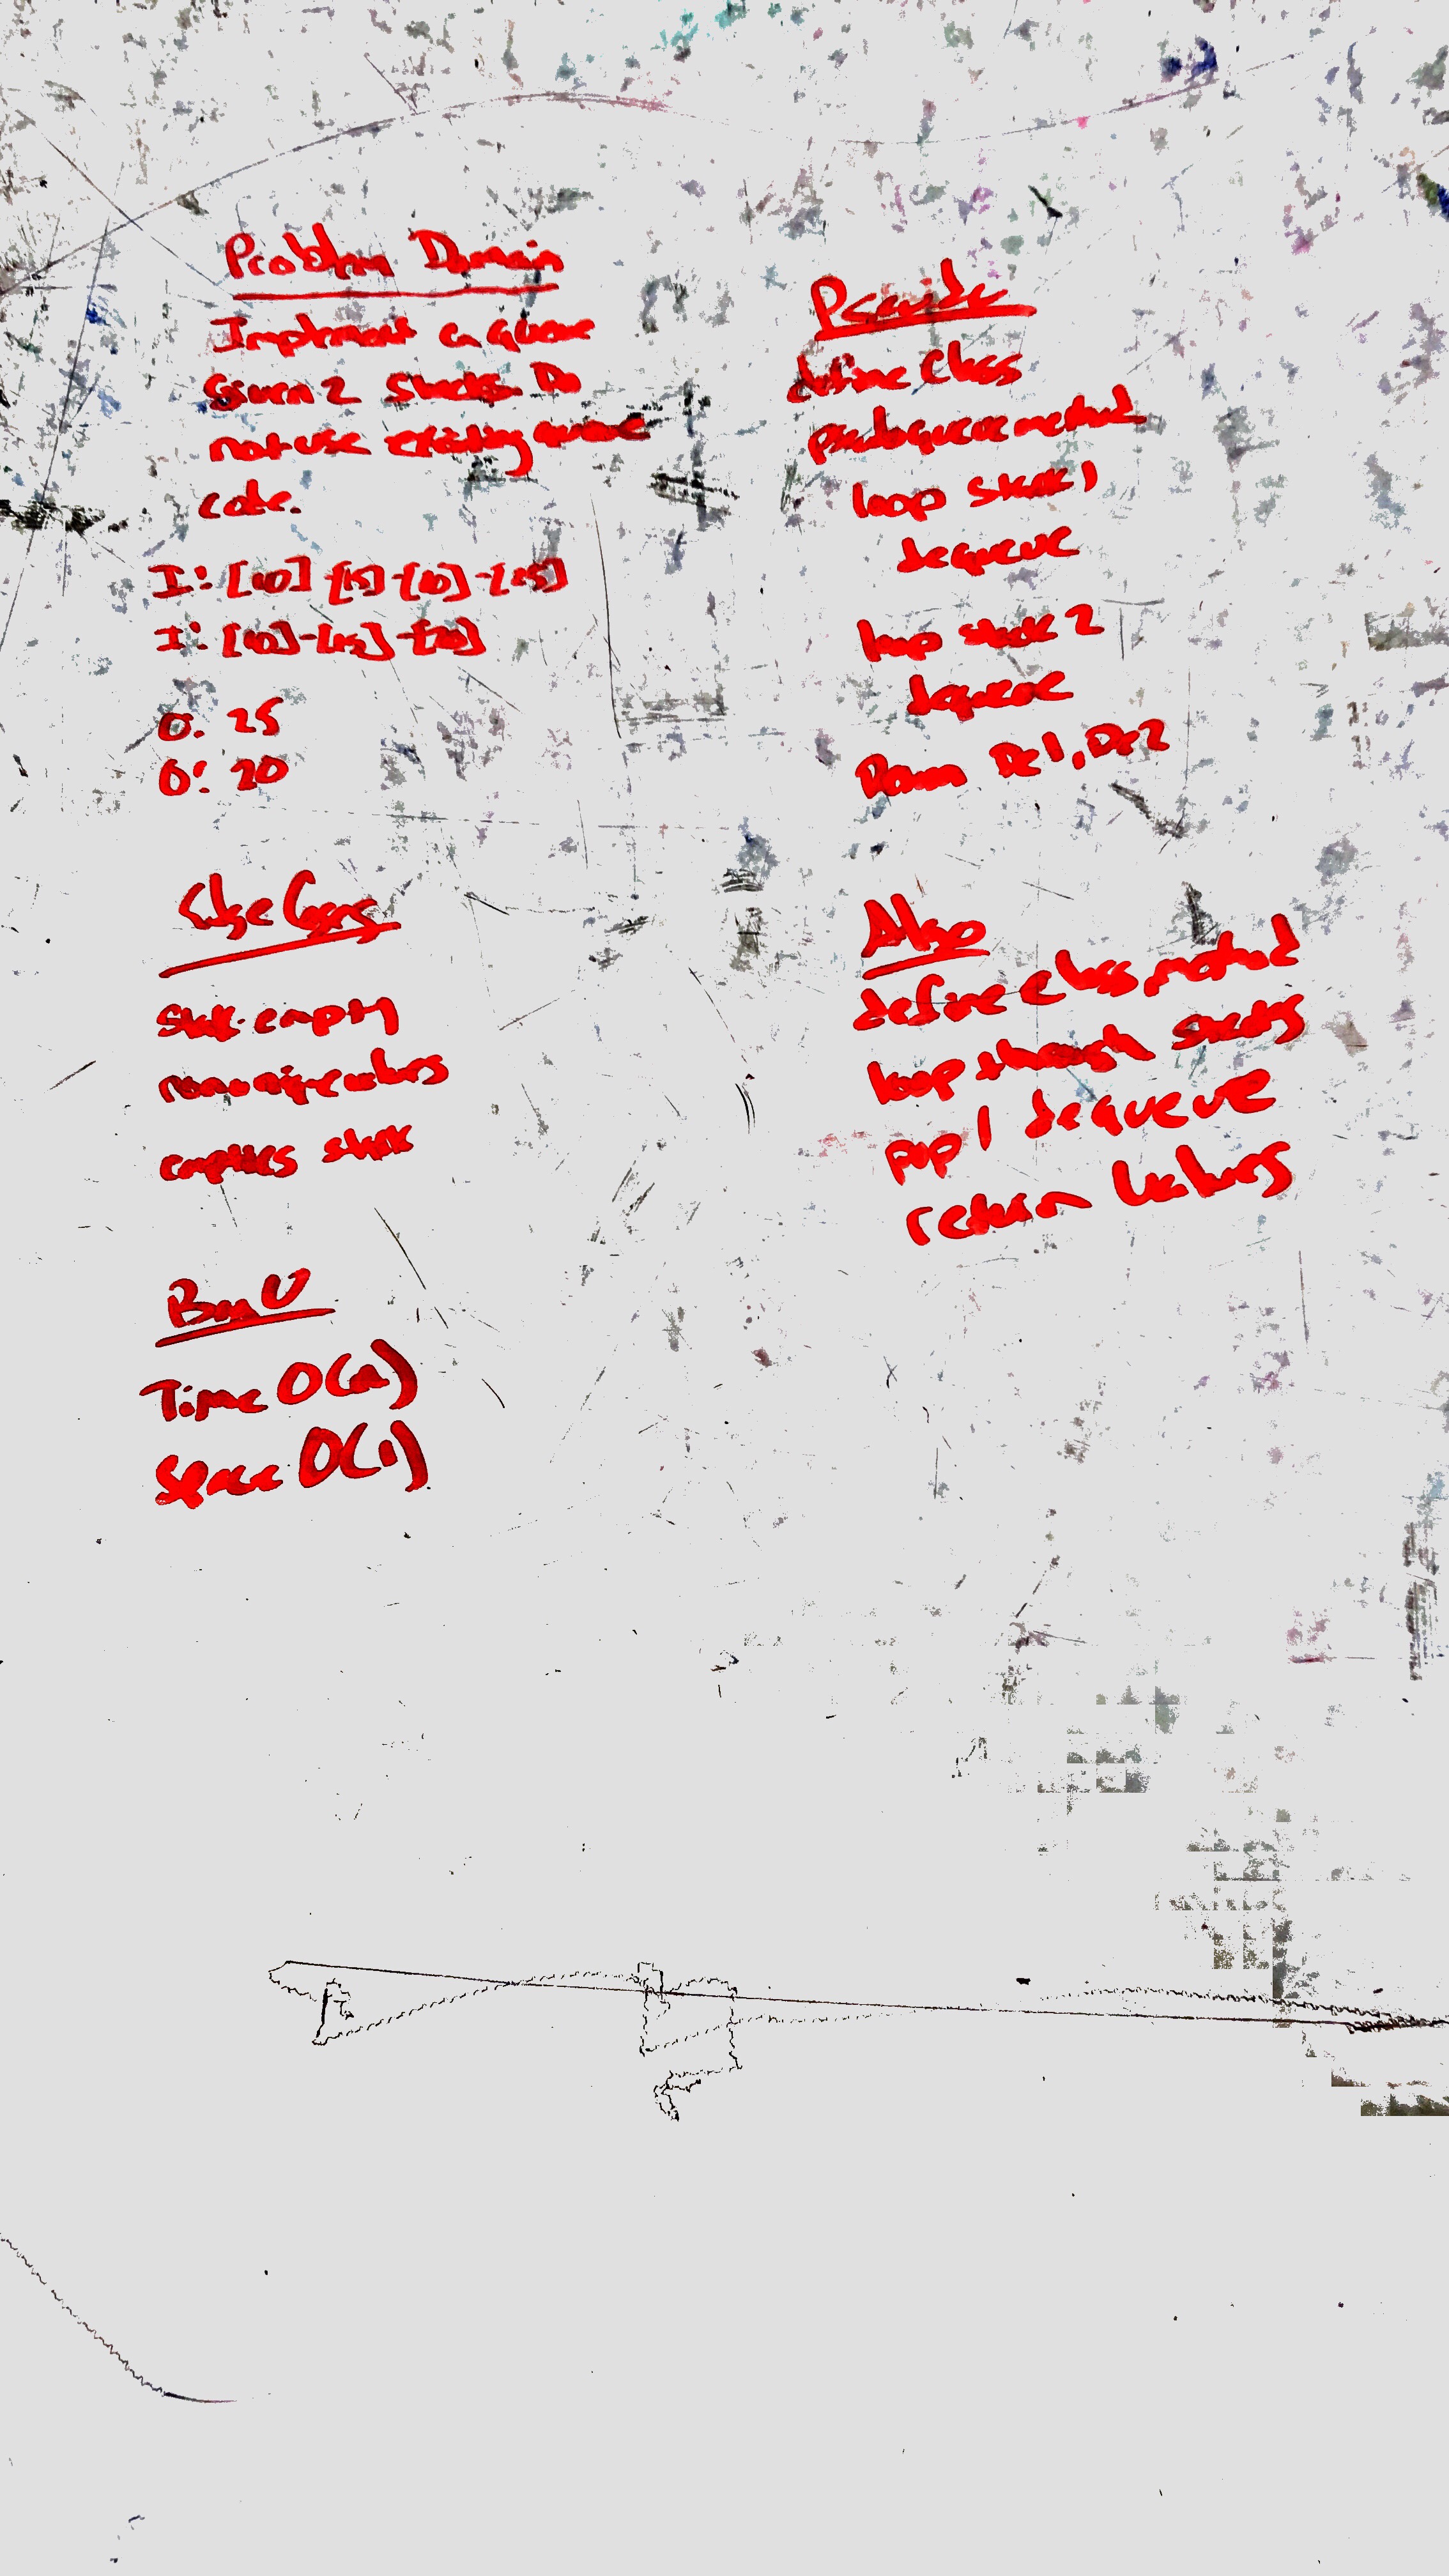 Problem Domain
Implement a queue
Given 2 Stacks Do
not use existing queue
code.
I: [10]-[15]-[20]-[25]
I: [10]-[15]-[20]
O: 25
O: 20
Edge Cases
Stack empty
non unique values
empties stack
Big O
Time O(n)
Space O(1)
Pseudo
define class
pseudoqueue method
loop stack 1
dequeue
loop stack 2
dequeue
Return De1, De2
Algo
define class, method
loop through stacks
pop / dequeue
return values